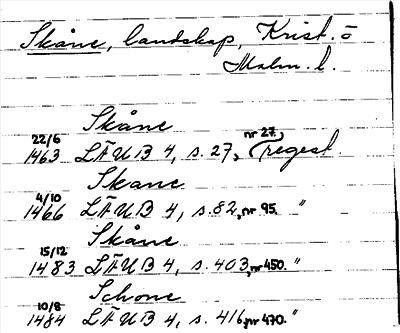 Skåne, landskap, Krist. ö
Malm. l.
Skåne
22/6 nr 27,
1463 LÄUB 4, s. 27, regest.
Skane
4/10
1466 LÄUB 4, s. 82, nr 95. "
Skåne
15/12
1483 LÄUB 4, s. 403, nr 450. "
Schone
10/8
1484 LÄUB 4, s. 416, nr 470. "